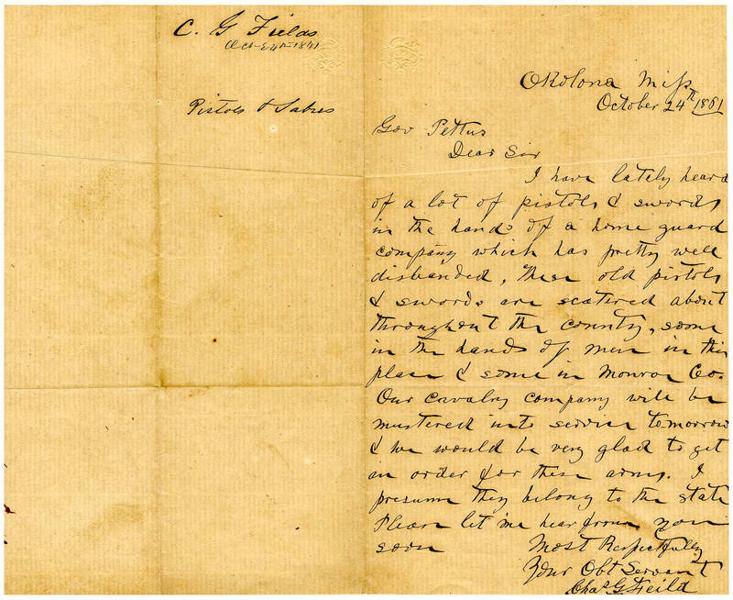 C. G Fields
Oct 24th 1861
Pistols & Sabres
Okolona Miss
October 24th 1861
Gov Pettus
Dear Sir
I have lately heard
of a lot of pistols & swords
in the hands of a home guard
company which has pretty well
disbanded, These old pistols
& swords are scatered about
throughout the county, some
in the hands of men in this
place & some in Monroe Co.
Our cavalry company will be
mustered into service tomorrow
& we would be very glad to get
an order for these arms. I
presume they belong to the state
Please let me hear from you
soon
Most Respectfully
Your Obt Servant
Chas G Feild